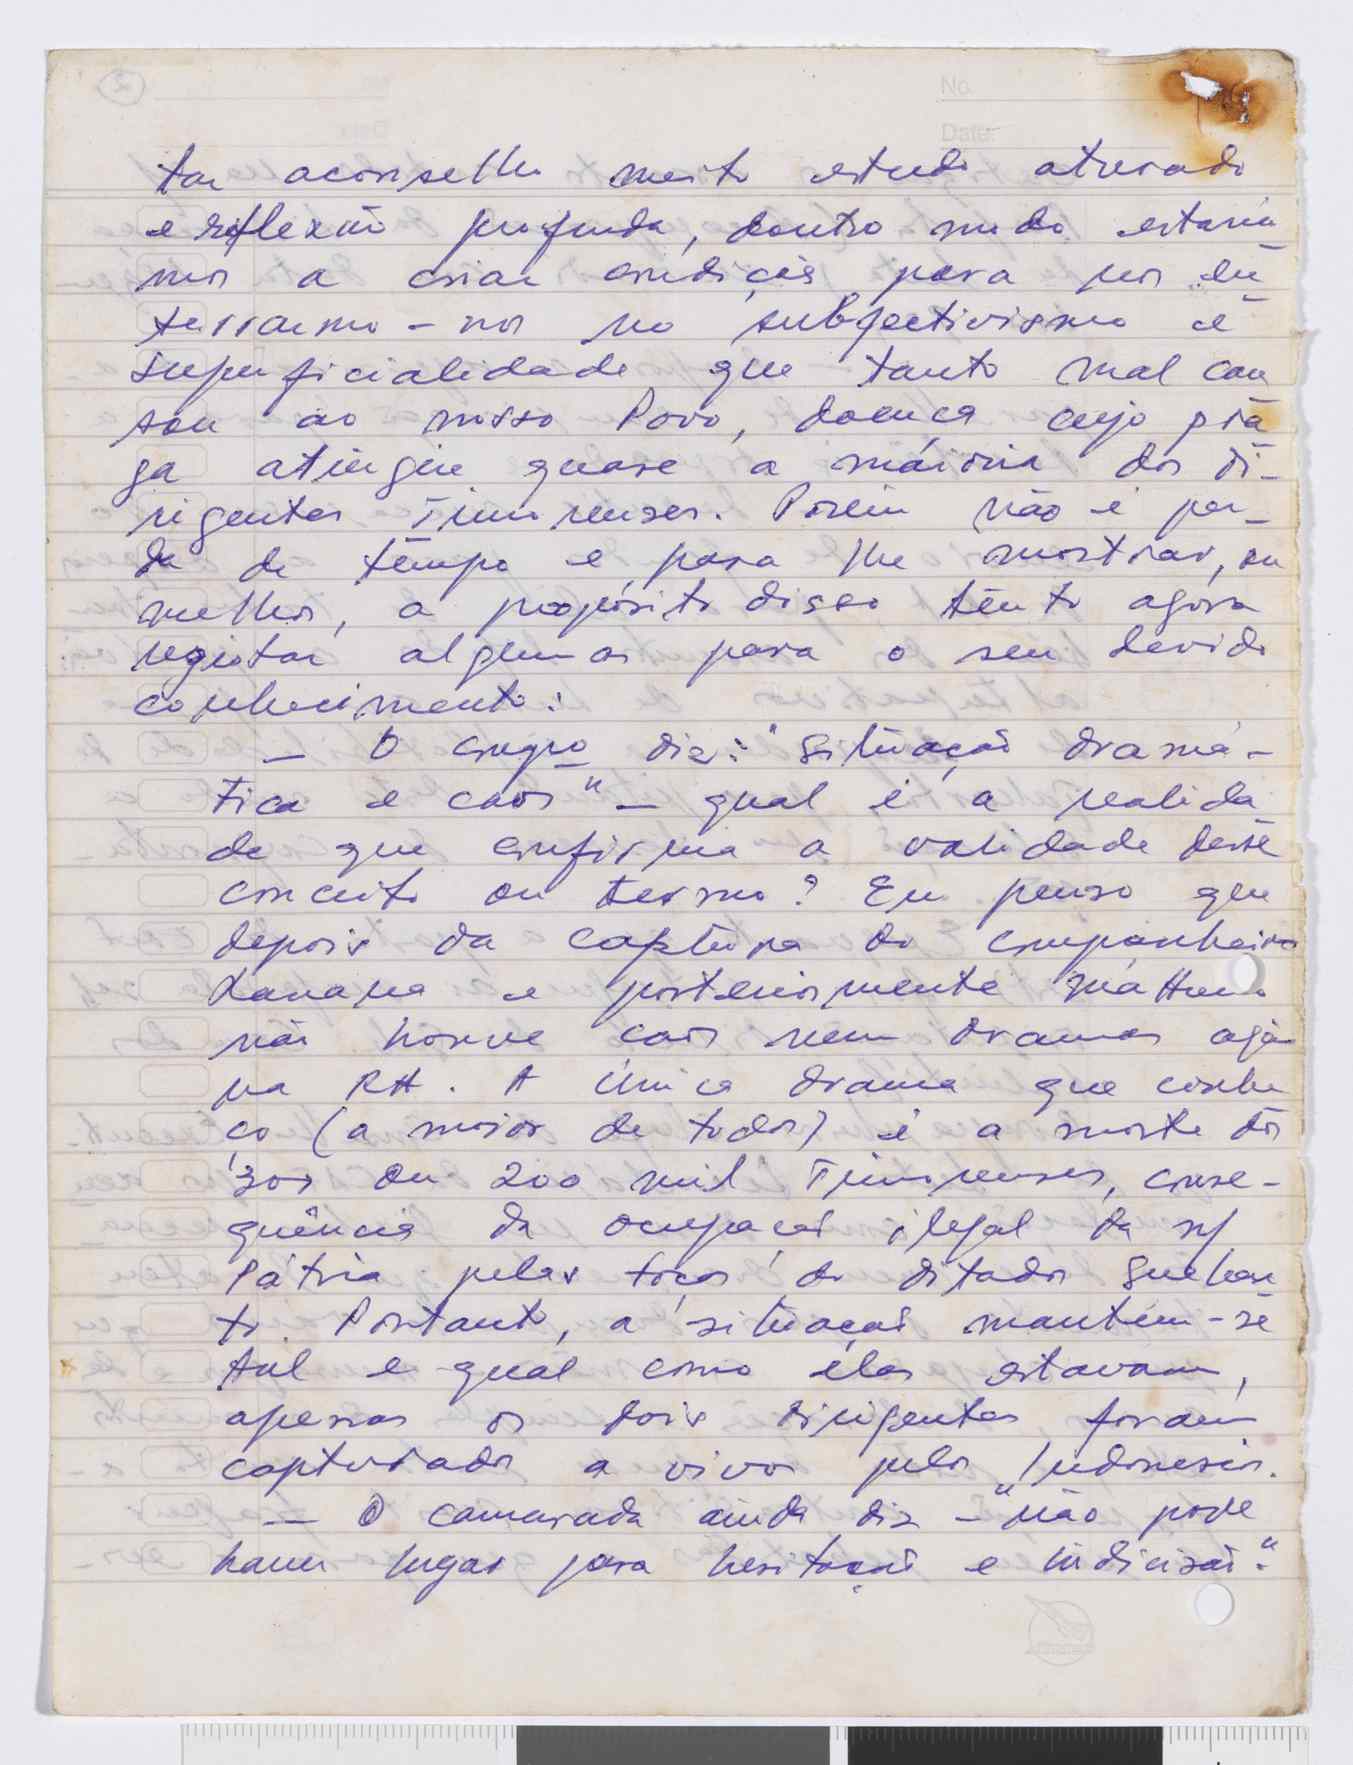 No.
Date:
tar aconselho muito estudo aturado
e reflexão profunda, doutro modo estaría
mos a criar condições para nos en
terrarmo-nos no subjectivismo e
superficialidade que tanto mal cau
sou ao nosso Povo, doença cujo pra
ga atingiu quase a maioria dos di-
rigentes Timorenses. Porém não é per-
da de tempo e para lhe mostrar, ou
melhor, a propósito disso tento agora
registar algumas para o seu devido
conhecimento:
— O compo diz: "situação dramá-
tica e caos" — qual é a realida
de que confirma a validade deste
conceito ou termo? Eu penso que
depois da captura do companheiro
Xanana e posteriormente Má Huno
não houve caos nem dramas
na RA. A única drama que conhe
ço (a maior de todos) é a morte dos
300 ou 200 mil Timorenses, conse-
quência da ocupação ilegal da n/
Pátria pelas forças do ditador Suehar
to. Portanto, a situação mantém-se
tal e qual como elas estavam,
apenas os dois dirigentes foram
capturados a vivos pelos Indonésios.
— O camarada ainda diz — "não pode
haver lugar para hesitação e indicisão".